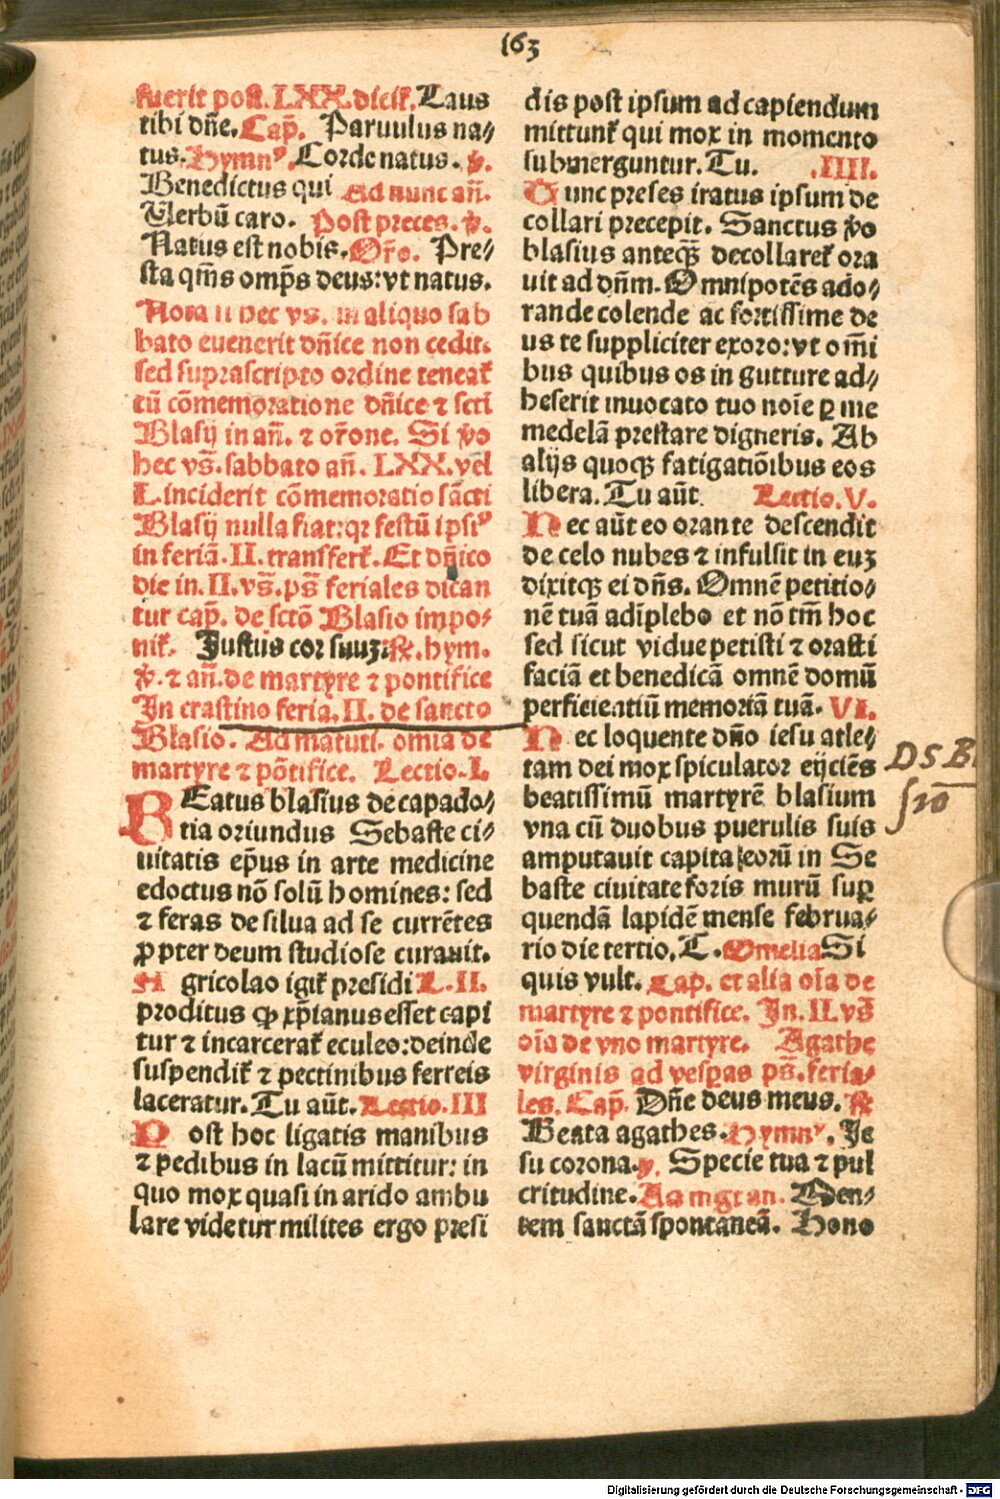 163
fuerit post. LXX. diciť. Laus
tibi dn̄e. Cap̄. Paruulus na⸗
tus. Hymnꝰ. Corde natus. ꝟ.
Benedictus qui Ad nunc an̄.
Verbū caro. Post preces. ꝟ.
Natus est nobis. Or̄o. Pre⸗
sta qm̄s omp̄s deus: vt natus.
Nota si hec vs. in aliquo sab
bato euenerit dn̄ice non cedit.
sed suprascripto ordine teneať
cū cōmemoratione dn̄ice ⁊ scti
Blasij in an̄. ⁊ or̄one. Si ꝟo
hec vs̄. sabbato an̄. LXX. vel
L. inciderit cōmemoratio sācti
Blasij nulla fiat: qꝛ festū ipsiꝰ
in feriā. II. transferť. Et dn̄ico
die in. II. vs̄. ps̄ feriales dican
tur cap̄. de sctō Blasio impo⸗
niť. Justus cor suuꝫ. ℟. hym.
ꝟ. ⁊ an̄. de martyre ⁊ pontifice
In crastino feria. II. de sancto
Blasio. Ad matuti. omia de
martyre ⁊ pōtifice. Lectio. I.
BEatus blasius de capado⸗
tia oriundus Sebaste ci⸗
uitatis ep̄us in arte medicine
edoctus nō solū homines: sed
⁊ feras de silua ad se currētes
ꝓpter deum studiose curauit.
Agricolao igiť presidi L. II.
proditus ꝙ xp̄ianus esset capi
tur ⁊ incarcerať eculeo: deinde
suspendiť ⁊ pectinibus ferreis
laceratur. Tu aūt. Lectio. III
Post hoc ligatis manibus
⁊ pedibus in lacū mittitur: in
quo mox quasi in arido ambu
lare videtur milites ergo presi
dis post ipsum ad capiendum
mittunť qui mox in momento
submerguntur. Tu. .IIII.
Tunc preses iratus ipsum de
collari precepit. Sanctus ꝟo
blasius anteqꝫ̄ decollareť ora
uit ad dn̄m. Omnipotēs ado⸗
rande colende ac fortissime de
us te suppliciter exoro: vt om̄i
bus quibus os in gutture ad⸗
heserit inuocato tuo noīe ꝑ me
medelā prestare digneris. Ab
alijs quoqꝫ fatigatiōibus eos
libera. Tu aūt. Lectio. V.
Nec aūt eo orante descendit
de celo nubes ⁊ infulsit in euꝫ
dixitqꝫ ei dn̄s. Omnē petitio⸗
nē tuā adīplebo et nō tm̄ hoc
sed sicut vidue petisti ⁊ orasti
faciā et benedicā omnē domū
perficientiū memoriā tuā. VI.
Nec loquente dn̄o iesu atle⸗
tam dei mox spiculator eijciēs
beatissimū martyrē blasium
vna cū duobus puerulis suis
amputauit capita eorū in Se
baste ciuitate foris murū suꝑ
quendā lapidē mense februa⸗
rio die tertio. T. Omelia Si
quis vult. Cap. et alia oīa de
martyre ⁊ pontifice. In. II. vs̄
oīa de vno martyre. Agathe
virginis ad vesꝑas ps̄. feria⸗
les. Cap̄. Dn̄e deus meus. ℟
Beata agathes. Hymnꝰ. Je
su corona. ꝟ. Specie tua ⁊ pul
critudine. Ad mgt an. Men⸗
tem sanctā spontaneā. Hono
D S B
Digitalisierung gefördert durch die Deutsche Forschungsgemeinschaft - DFG